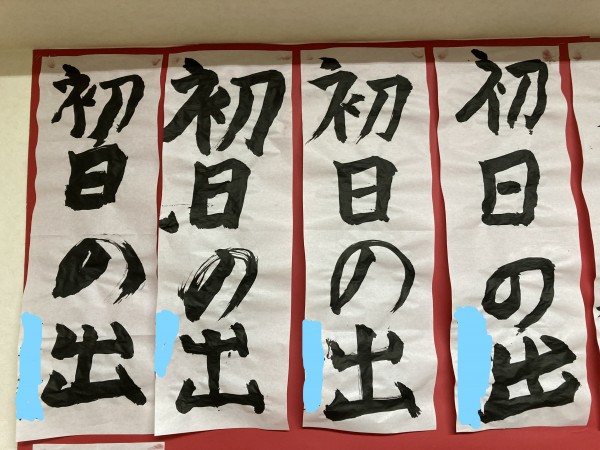 初日の出
初日の出
初日の出
初日の出